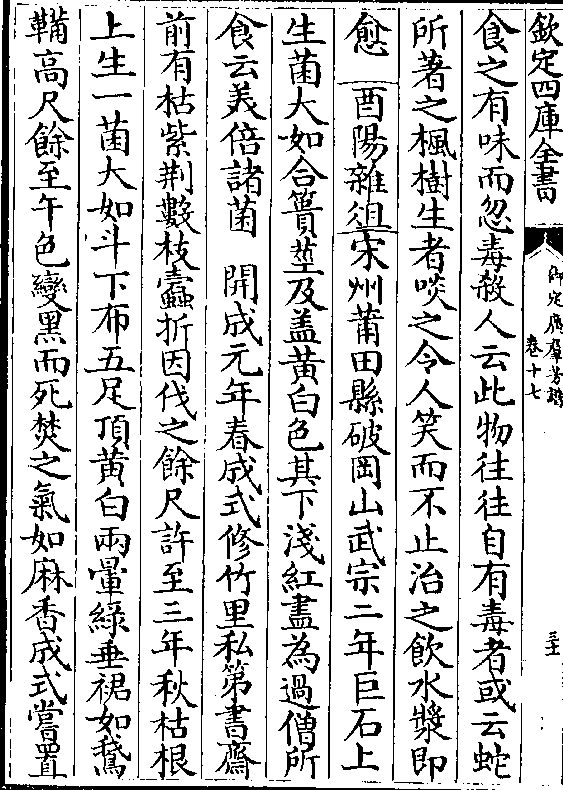 欽定四庫全書
御定廣羣芳譜
卷十七
三十
食之有味而忽毒殺人云此物往往自有毒者或云蛇
所著之楓樹生者啖之令人笑而不止治之飲水漿即
愈 酉陽雜俎宋州莆田縣破岡山武宗二年巨石上
生菌大如合簣莖及盖黄白色其下淺紅盡為過僧所
食云美倍諸菌 開成元年春成式修竹里私第書齋
前有枯紫荆數枝蠧折因伐之餘尺許至三年秋枯根
上生一菌大如斗下布五足頂黄白兩暈緑垂裙如鵝
鞴高尺餘至午色變黑而死焚之氣如麻香成式嘗置